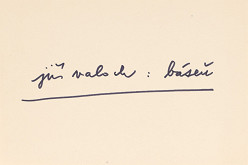 jiří valoch : báseň